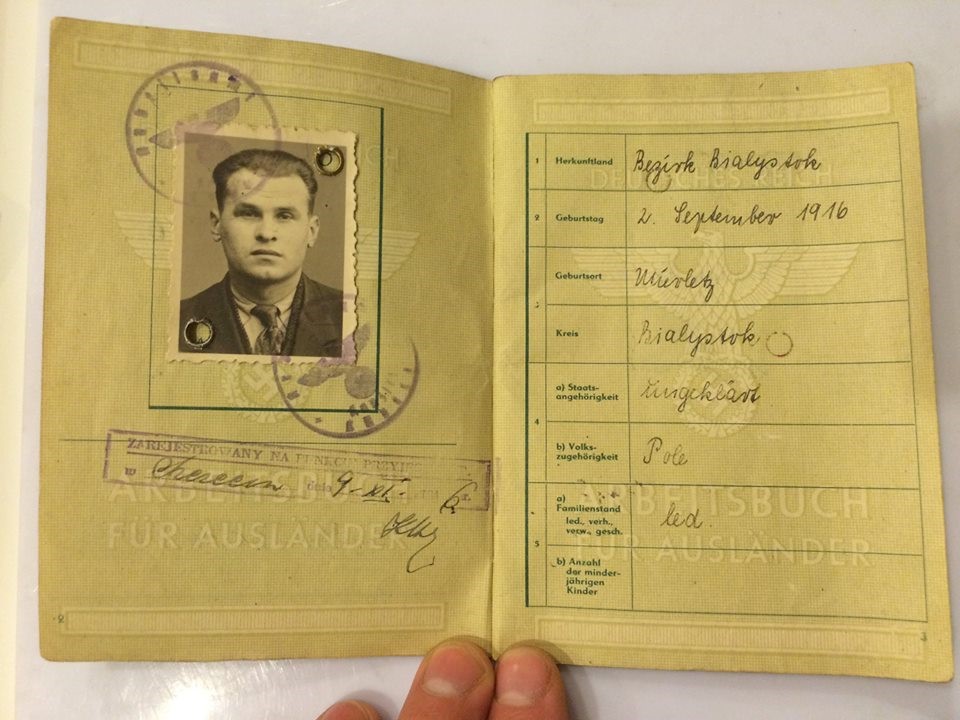 Arbeitsamt
ZAREJESTROWANY NA PUNKCIE
w Szczecin dnia 9. XI. 6 r.
ARBEITSBUCH
FÜR AUSLÄNDER
2
DEUTSCHES REICH
1 Herkunftland Bezirk Bialystok
2 Geburtstag 2. September 1916
3 Geburtsort
Kreis Bialystok
4 a) Staats-
angehörigkeit Ungeklärt
b) Volks-
zugehörigkeit Pole
5 a)
Familienstand
led., verh.,
verw., gesch. led.
b) Anzahl
der minder-
jährigen
Kinder
ARBEITSBUCH
FÜR AUSLÄNDER
3